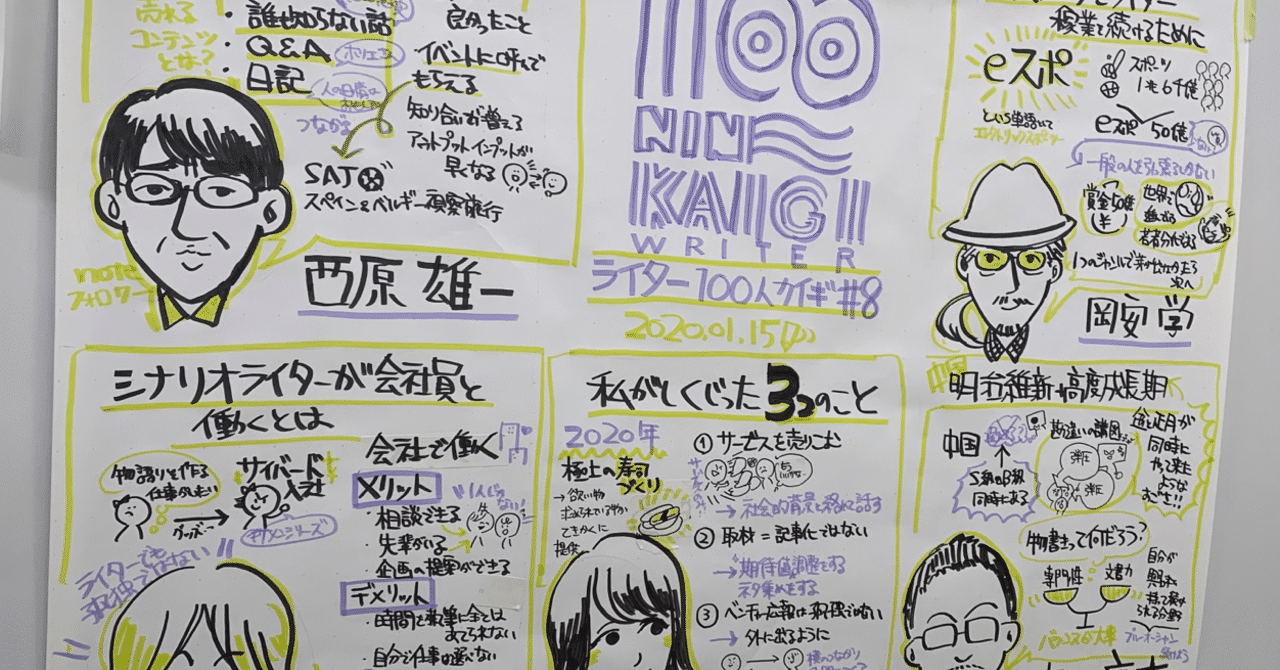 売れる
コンテンツ
とは?
・誰も知らない話
・Q&A
・日記
つながる
良かったこと
イベントに呼んで
もらえる
知り合いが増える
アウトプットインプットが
早くなる
SAJ
スペイン&ベルギー視察旅行
note
フォロワー
西原 雄一
100
NIN
KAIGI
WRITER
ライター100人カイギ#8
2020.01.15
稼業で続けるために
eスポ
スポーツ
1兆6千億
という単語は
eスポ 50億
賞金50億
(¥)
岡安 学
シナリオライターが会社員と
働くとは
物語りを作る
仕事がしたい
サイバード
入社
ライターでも
孤独ではない
会社で働く
メリット
・相談できる
・先輩がいる
・企画の提案ができる
デメリット
・時間を執筆に全ては
あてられない
・自分で仕事は選べない
私がしくじった3つのこと
2020年
極上の寿司
づくり
→欲い物
てきかくに
提供
① サービスを売りこむ
→社会的背景と絡めて話す
② 取材=記事化ではない
→期待値調整をする
ネタ集めをする
③ ベンチャー広報は
→外に出るように
横のつながり
中国
明治維新+高度成長期
中国
勘違いの諸国
S級とB級
同時にある
盆と正月が
同時に
やって来た
ような
物書きって何だろう?
専門性
文章力
バランスが大事
自分が
ブルーオーシャン